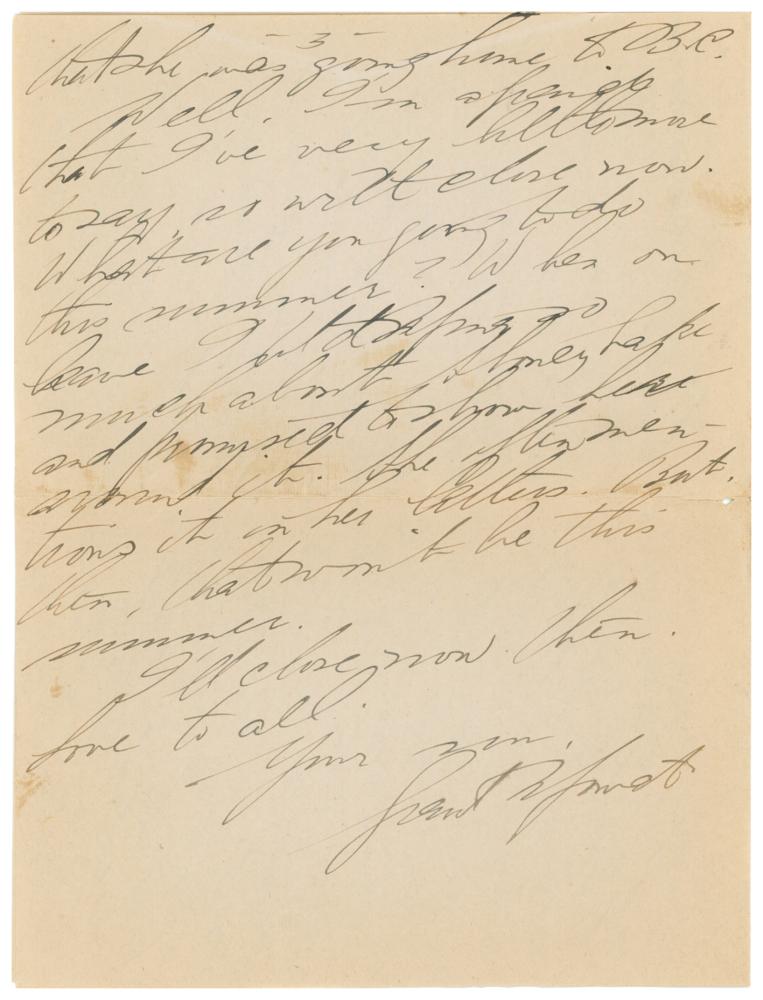 -3-
that she was going home to B.C.
Well, I'm afraid
that I've very little more
to say, so will close now.
What are you going to do
this summer? When on
leave I talked so
much about Stoney Lake
and promised to show her
around it. She often men-
tions it in her letters. But,
then, that won't be this
summer.
I'll close now then.
Love to all.
Your son,
Grant